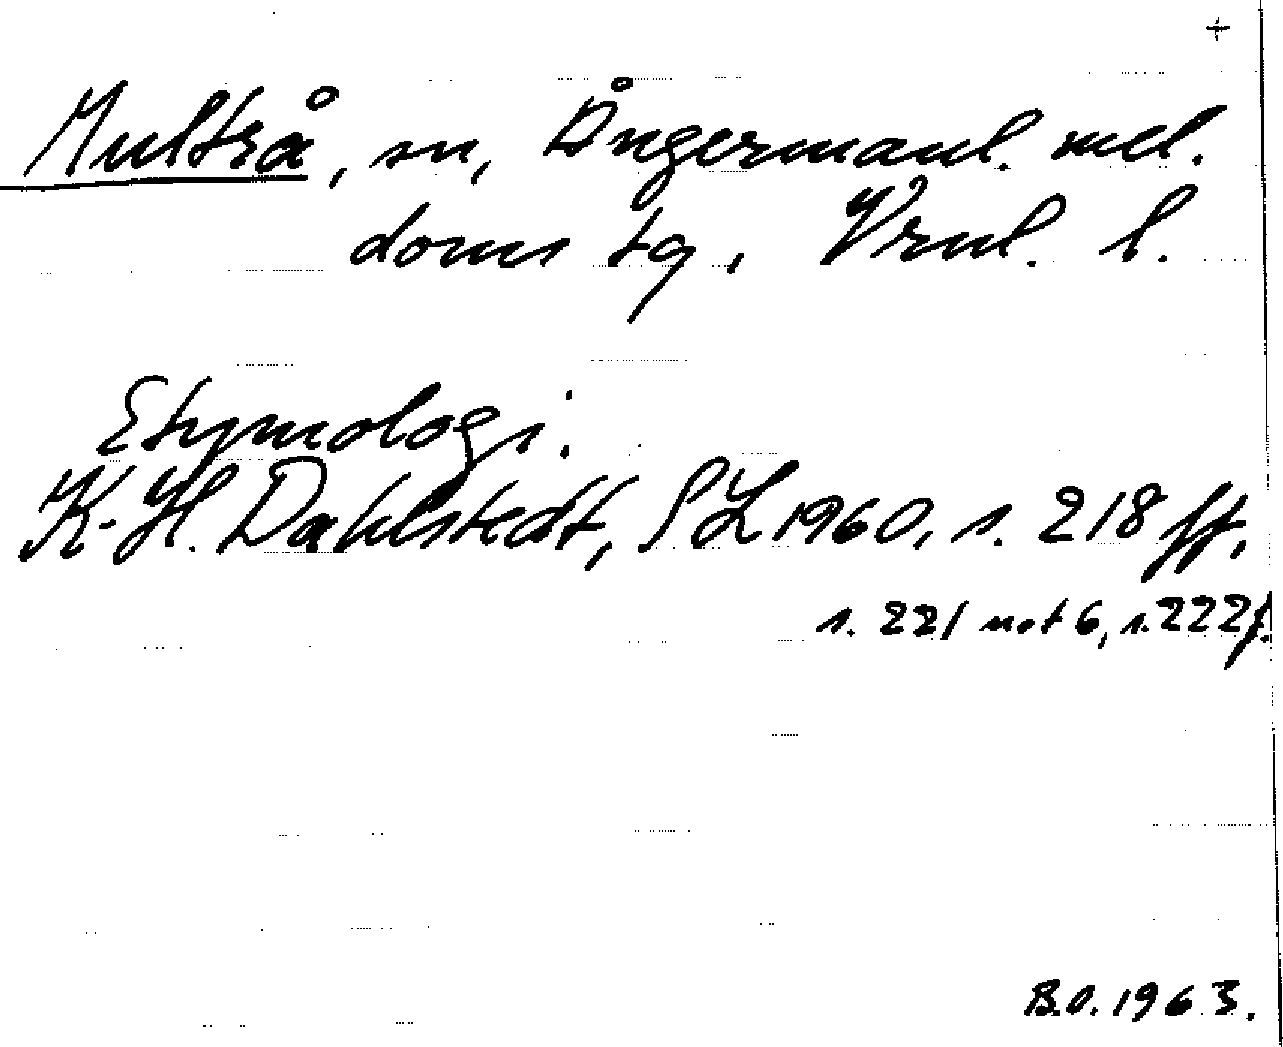 +
Multrå, sn, Ångermanl. mel.
doms tg, Vrnl. l.
Etymologi:
K-H. Dahlstedt, SL 1960, s. 218 ff,
s. 221 not 6, s. 222 f.
B.O. 1963.